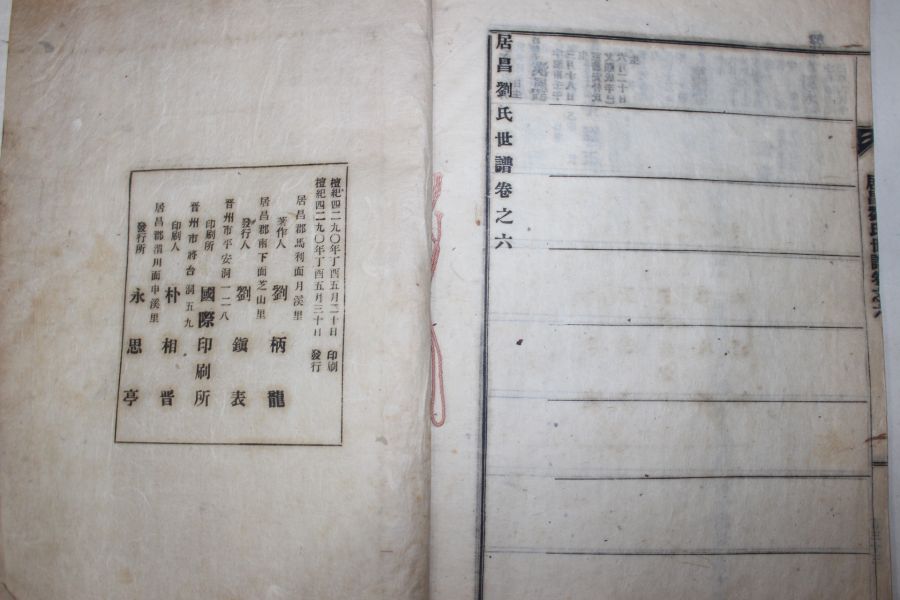 居昌劉氏世譜卷之六
檀紀四二九〇年丁酉五月二十日 印刷
檀紀四二九〇年丁酉五月三十日 發行
居昌郡馬利面月溪里
著作人 劉柄龍
居昌郡南下面芝山里
發行人 劉鎭表
晋州市平安洞一二八
印刷所 國際印刷所
晋州市將台洞五九
印刷人 朴相晋
居昌郡渭川面申溪里
發行所 永思亭
居昌劉氏世譜卷之六